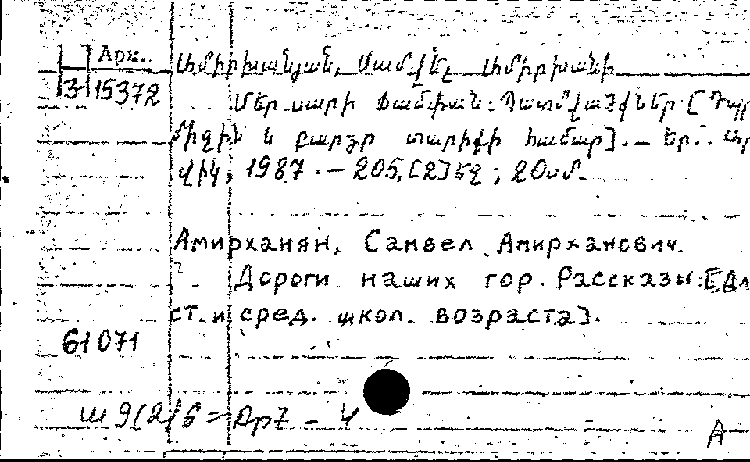 Арх..
3 15372
Ամիրխանյան, Սամվել Ամիրխանի
Մեր սարի ճամփան: Պատմվածքներ [
միջին և բարձր տարիքի համար]. — Եր.:
վիկ, 1987. — 205,[2] էջ; 20սմ.
Амирханян, Самвел Амирханович.
Дороги наших гор. Рассказы. [Дл
ст. и сред. школ. возраста].
61071
А